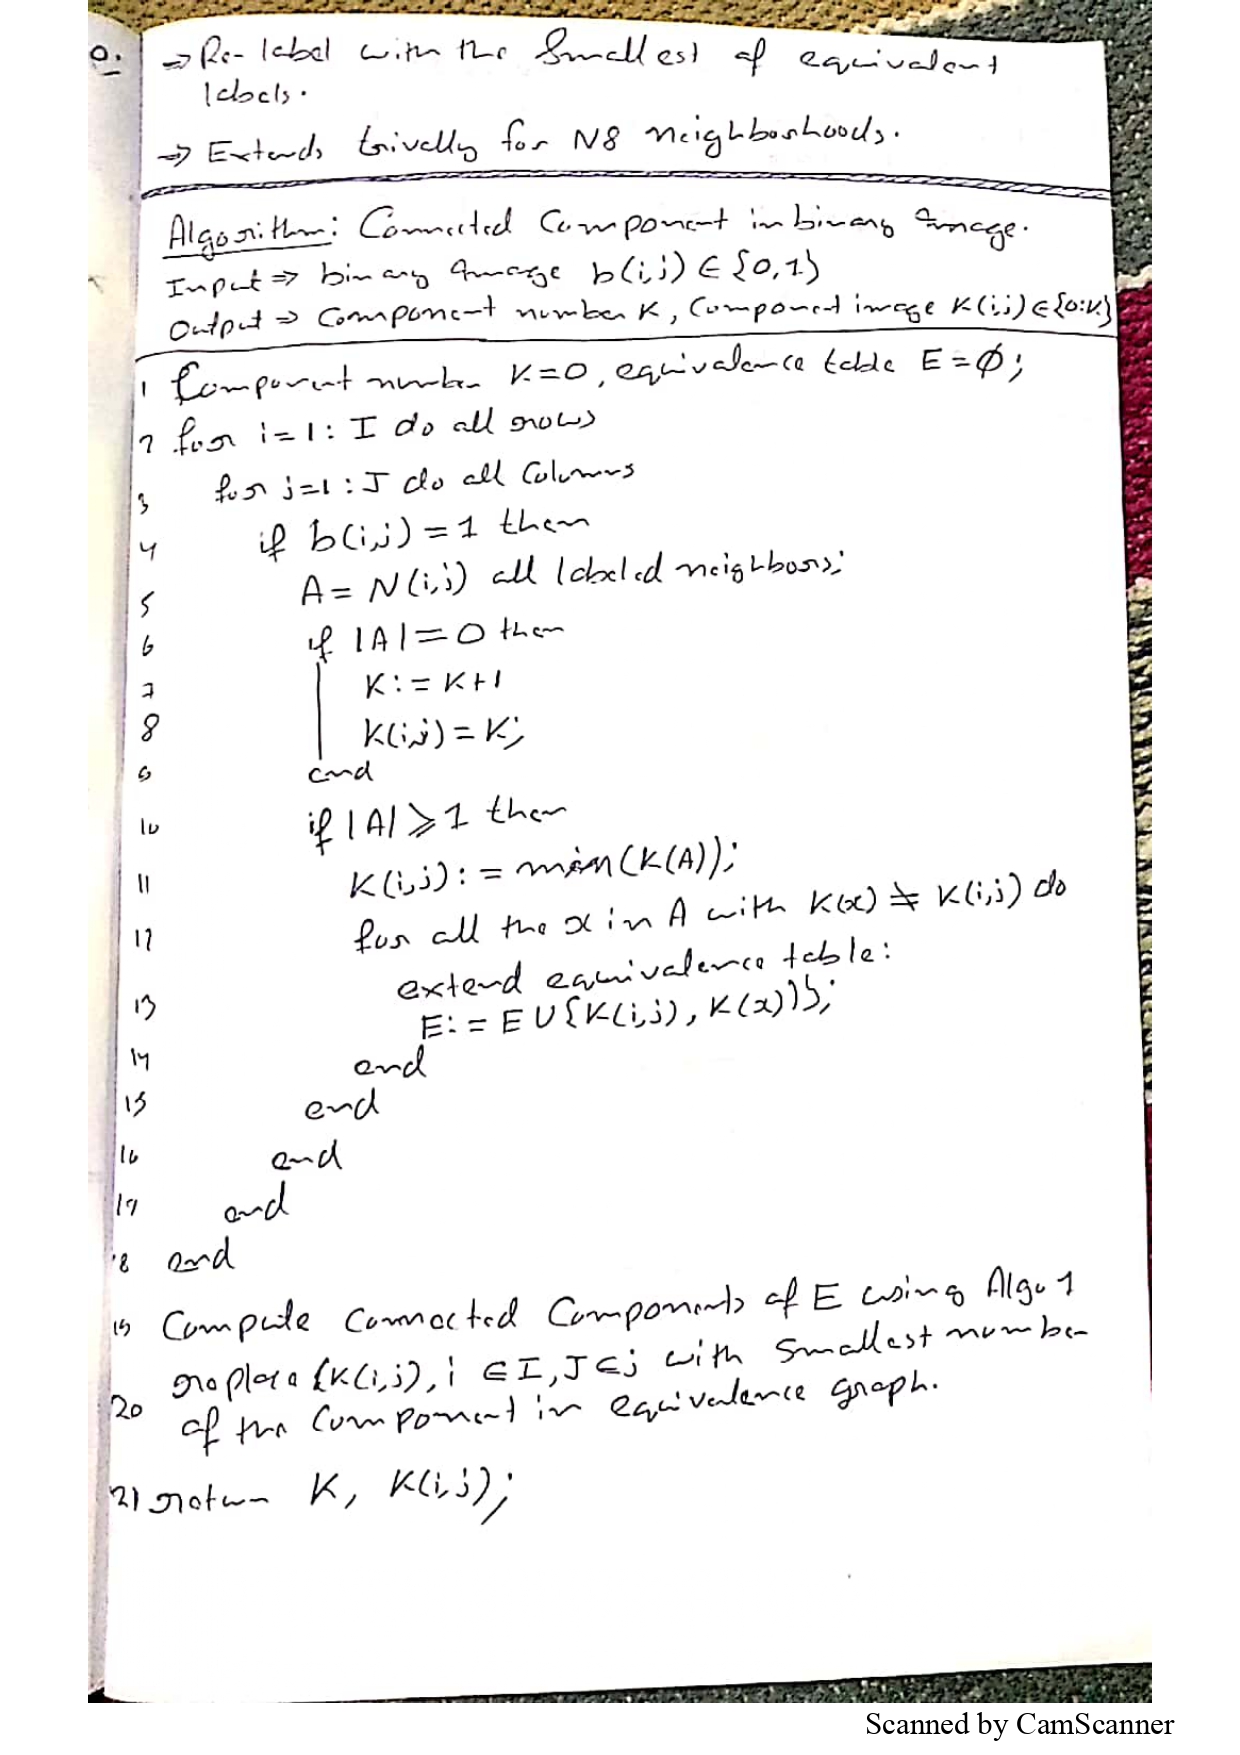 0. → Re-label with the Smallest of equivalent
labels.
⇒ Extends trivelly for N8 neighborhoods.
Algorithm: Connected Component in binary Image.
Input ⇒ binary Image b(i,j) ∈ {0,1}
Output ⇒ Component number K, Component image K(i,j) ∈ {0:K}
1 Component number K=0, equivalence table E = ∅;
2 for i=1:I do all rows
3 for j=1:J do all Columns
4 if b(i,j) = 1 then
5 A = N(i,j) all labeled neighbors;
6 if |A| = 0 then
7 K := K+1
8 K(i,j) = K;
9 end
10 if |A| ⩾ 1 then
11 K(i,j) := min(K(A));
12 for all the x in A with K(x) ≠ K(i,j) do
extend equivalence table:
13 E := E U {K(i,j), K(x))};
14 end
15 end
16 end
17 end
18 end
19 Compute Connected Components of E using Algo 1
20 replace {K(i,j), i ∈ I, J ∈ j with smallest number
of the Component in equivalence graph.
21 return K, K(i,j);
Scanned by CamScanner